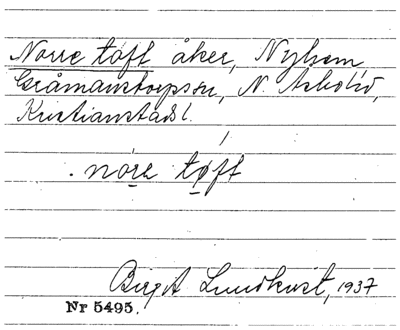 Norre toft åker, Nyhem,
Gråmanstorpssn, N. Åsbohd,
Kristianstads l.
nóre tøft
Birgit Lundkvist, 1937
Nr 5495.